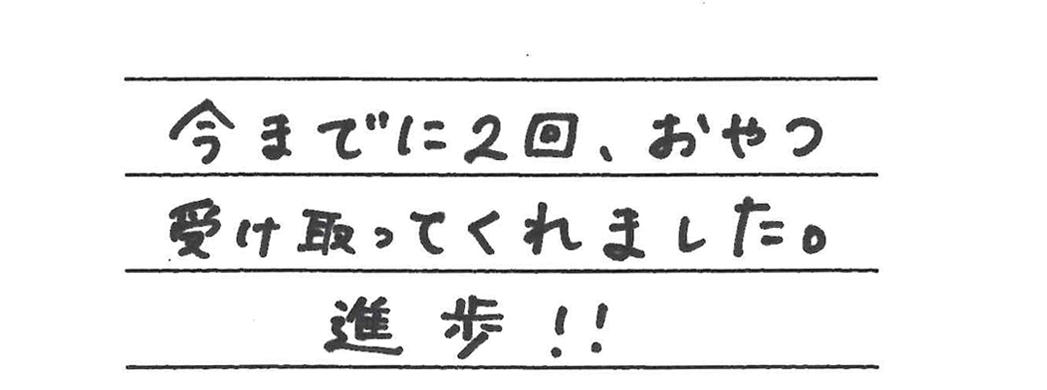 今までに2回、おやつ
受け取ってくれました。
進歩!!